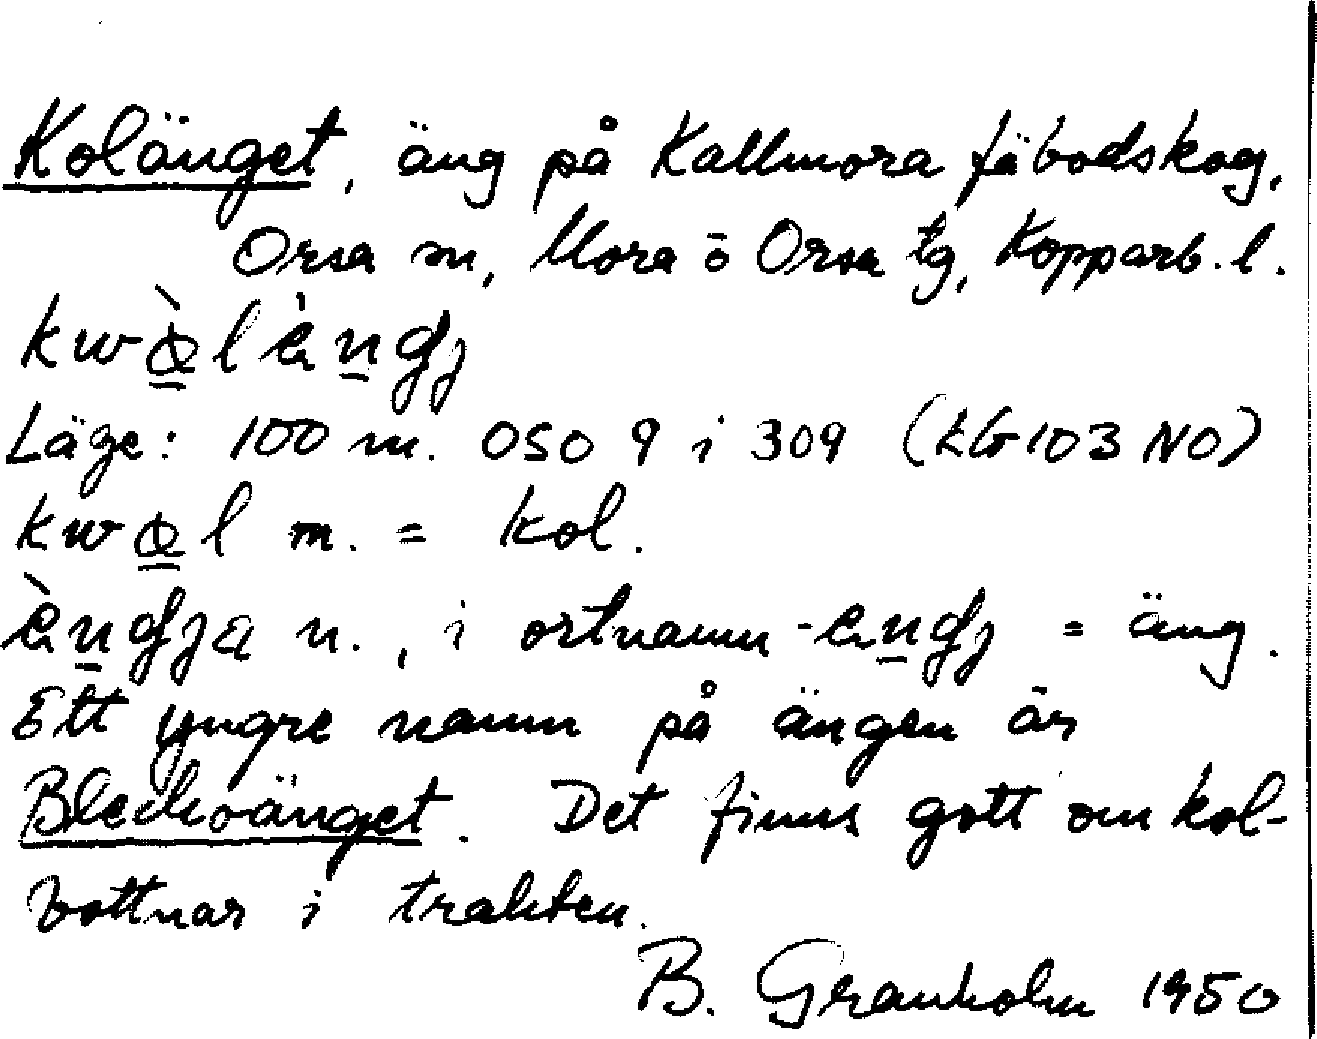 Kolänget, äng på Kallmora fäbodskog,
Orsa sn, Mora o Orsa tg, Kopparb. l.
kwò̳lèn̲gj
Läge: 100 m. OSO 9 i 309 (LG 103 NO)
kwo̳l m. = kol.
èn̲gja n., i ortnamn -en̲gj = äng.
Ett yngre namn på ängen är
Bleckoänget. Det finns gott om kol-
bottnar i trakten.
B. Granholm 1950